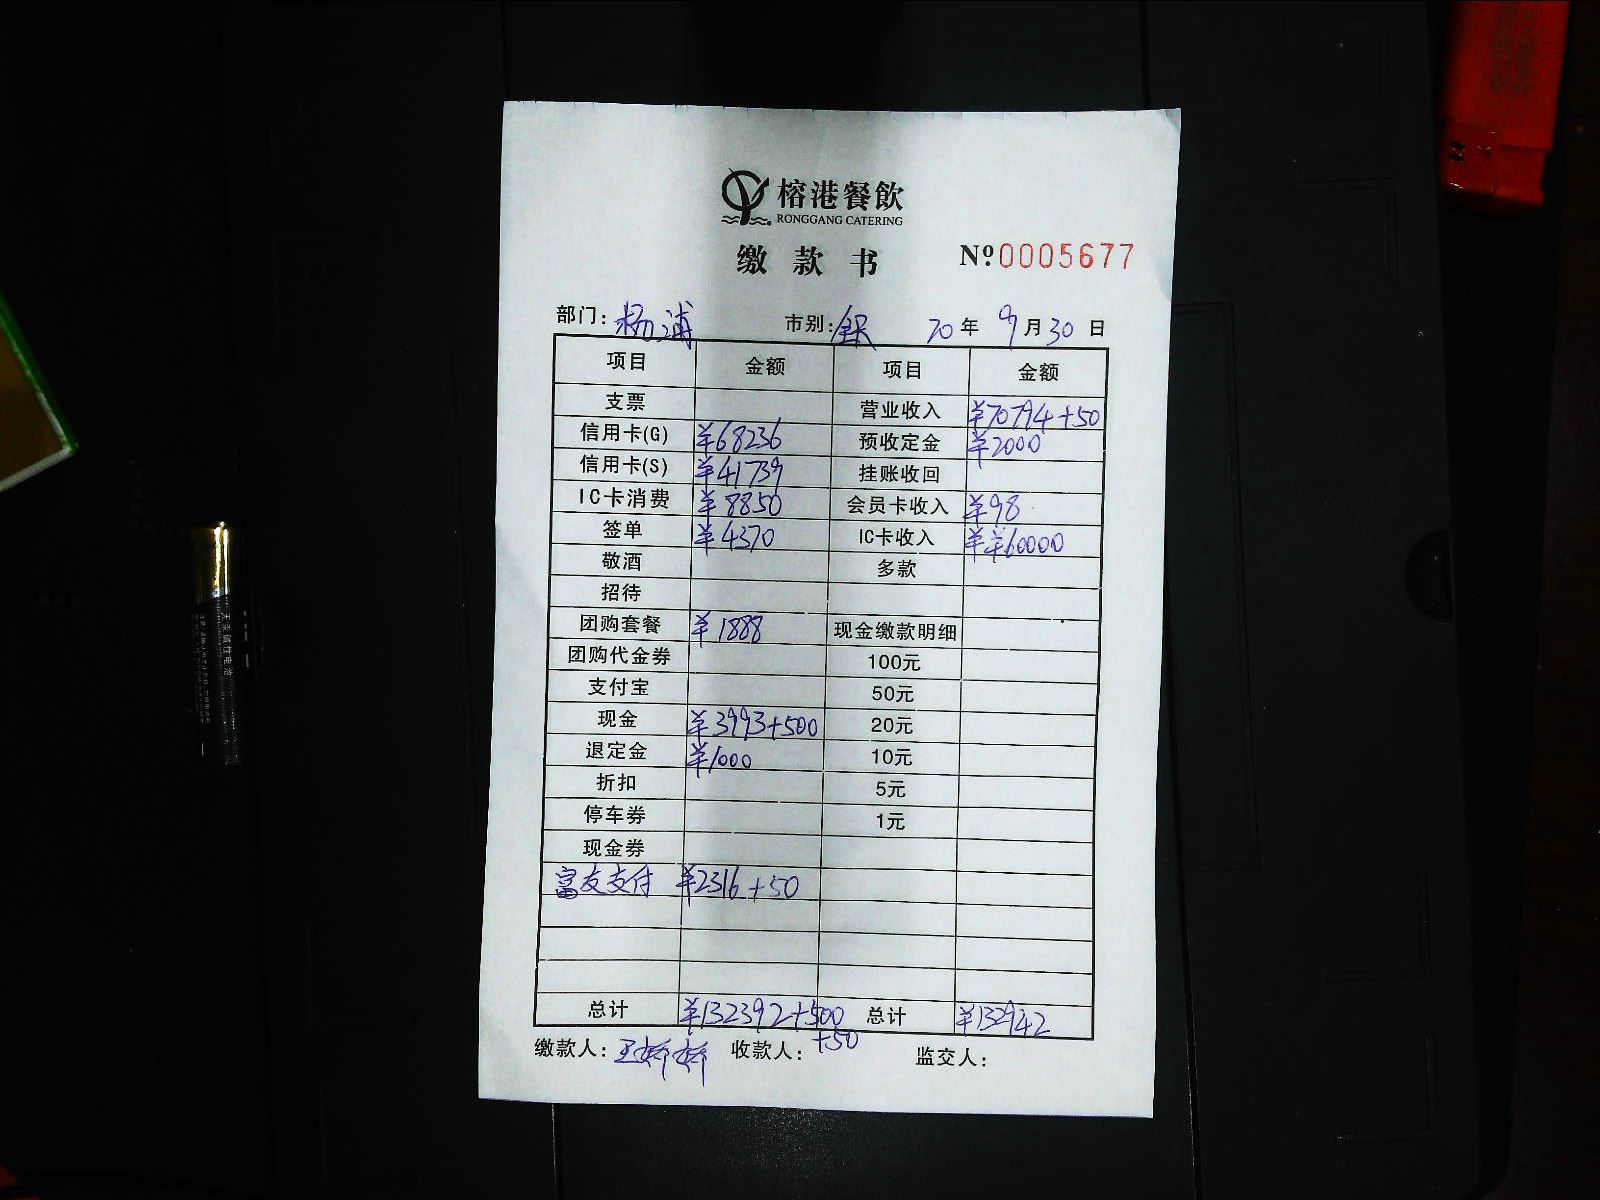 榕港餐飲
RONGGANG CATERING
缴款书 Nº0005677
部门：杨浦 市别：全天 20年 9月30日
项目 金额 项目 金额
支票 营业收入 ¥70794+50
信用卡(G) ¥68236 预收定金 ¥2000
信用卡(S) ¥41739 挂账收回
IC卡消费 ¥8850 会员卡收入 ¥98
签单 ¥4370 IC卡收入 ¥¥60000
敬酒 多款
招待
团购套餐 ¥1888 现金缴款明细
团购代金券 100元
支付宝 50元
现金 ¥3993+500 20元
退定金 ¥1000 10元
折扣 5元
停车券 1元
现金券
富友支付 ¥2316+50
总计 ¥132392+500 总计 ¥132942
+50
缴款人：王娇娇 收款人： 监交人：
无汞碱性电池